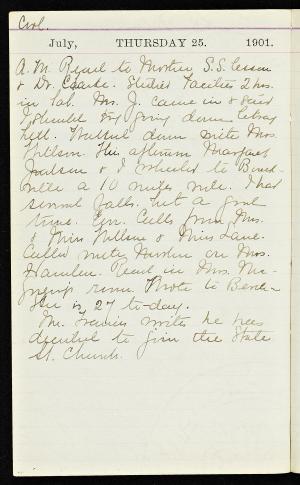 Cool.
July, THURSDAY 25. 1901.
A.M. Read to Mother S.S. Lesson
& Dr. Studied 2 hrs.
in Lab. Mrs. J. came in & said
I going down
hill. Walked down with Mrs.
Willson. This afternoon Margaret
& I wheeled to
ville a 10 miles ride. I had
several falls. but a good
time. Eve. Calls from Mrs.
& Miss Willson & Miss Lane.
Called with on Mrs.
Hamlen. Read in Mrs.
room. Wrote to
She is 27 to-day.
Mr. writes he has
decided to join the State
St. Church.